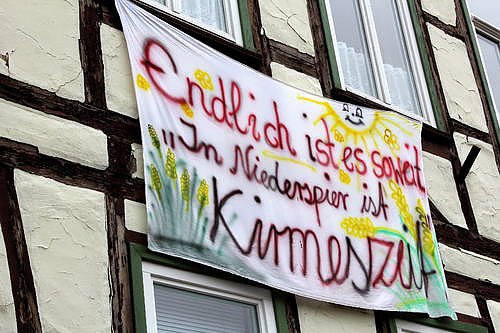 Endlich ist es soweit
"In Niederspier ist
Kirmeszeit